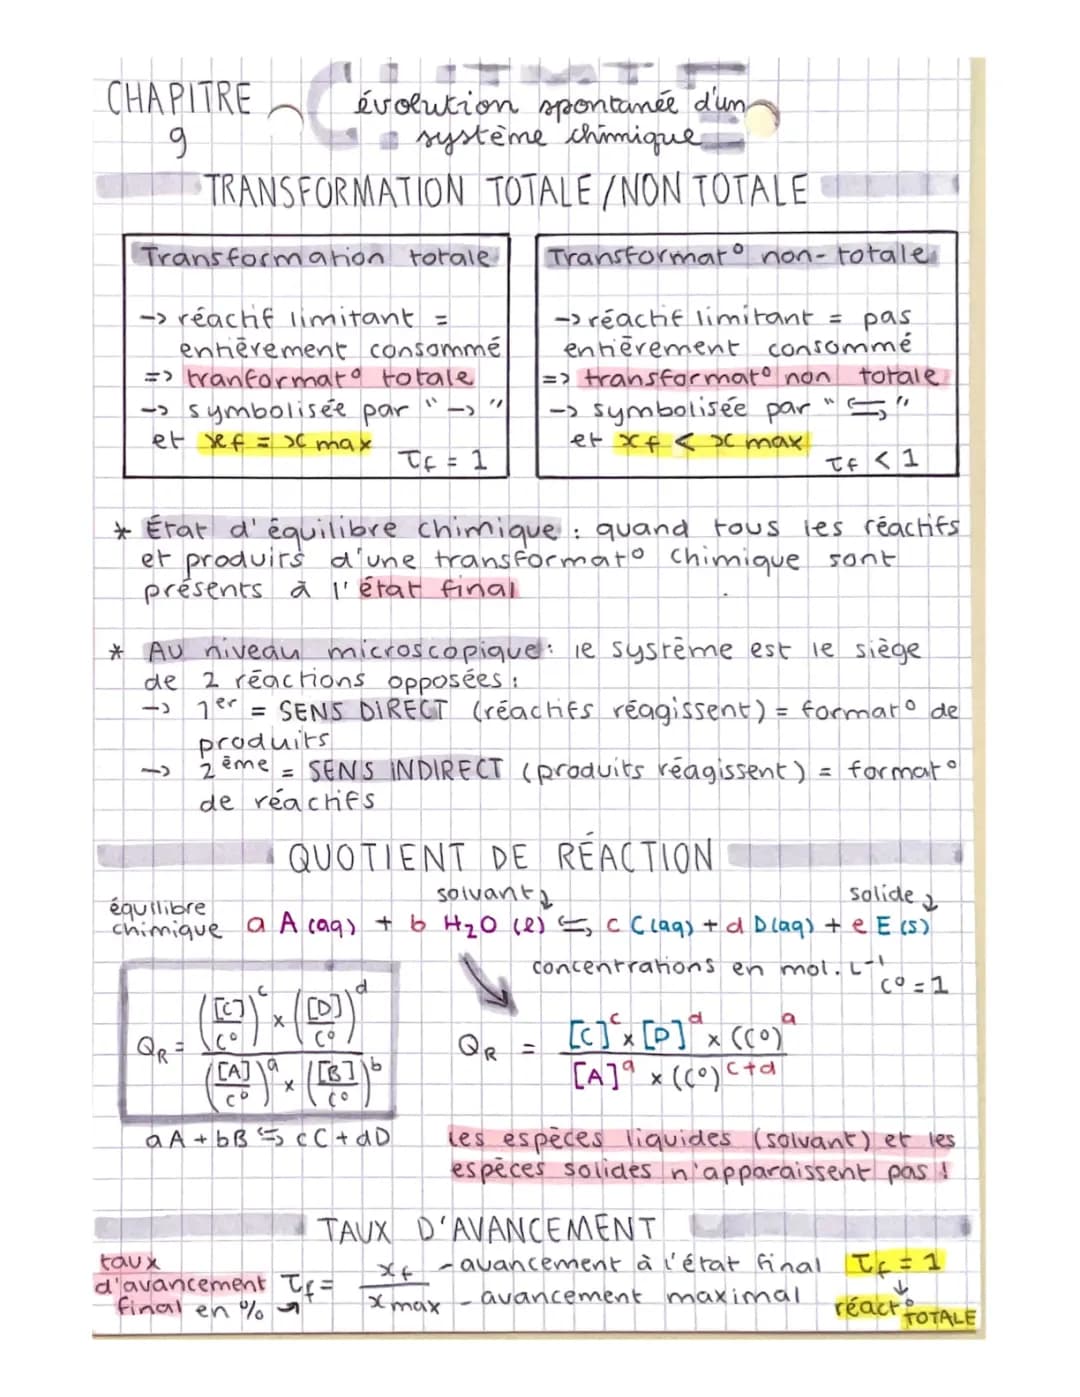 CHAPITRE
9
CHIMIE
évolution spontanée d'un
système chimique
TRANSFORMATION TOTALE / NON TOTALE
Transformation totale
-> réactif limitant =
entièrement consommé
=> tranformat° totale
-> symbolisée par "->"
et xf = x max
τf = 1
Transformat° non-totale
-> réactif limitant = pas
entièrement consommé
=> transformat° non totale
-> symbolisée par "⇆"
et xf < x max
τf < 1
* État d'équilibre chimique : quand tous les réactifs
et produits d'une transformat° chimique sont
présents à l'état final
* Au niveau microscopique : le système est le siège
de 2 réactions opposées :
-> 1er = SENS DIRECT (réactifs réagissent) = format° de
produits
-> 2ème = SENS INDIRECT (produits réagissent) = format°
de réactifs
QUOTIENT DE RÉACTION
solvant
solide
équilibre
chimique a A (aq) + b H₂O (l) ⇆ c C (aq) + d D (aq) + e E (s)
concentrations en mol.L⁻¹
C° = 1
QR = (([C]/C°)^c × ([D]/C°)^d) / (([A]/C°)^a × ([B]/C°)^b)
aA + bB ⇆ cC + dD
QR = ([C]^c × [D]^d × ((C°)^a) / ([A]^a × ((C°)^c+d)
Les espèces liquides (solvant) et les
espèces solides n'apparaissent pas !
TAUX D'AVANCEMENT
taux
d'avancement
final en %
τf = xf / x max
- avancement à l'état final
- avancement maximal
τf = 1
réact°
TOTALE